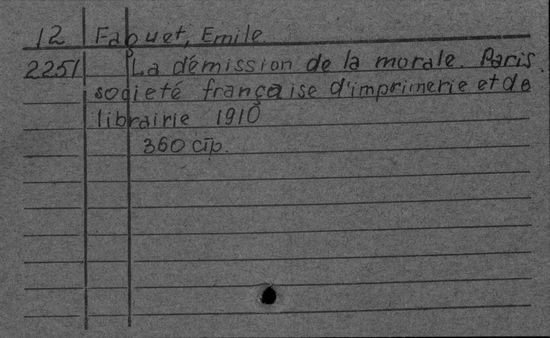 12 Faguet, Emile
2251 La démission de la morale. Paris.
societé française d'imprimerie et de
librairie 1910
360 p.